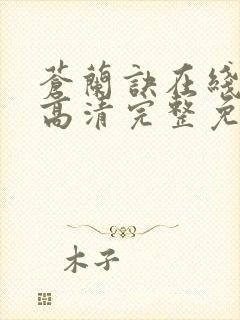 蒼蘭訣在綫
高清完整免
木子